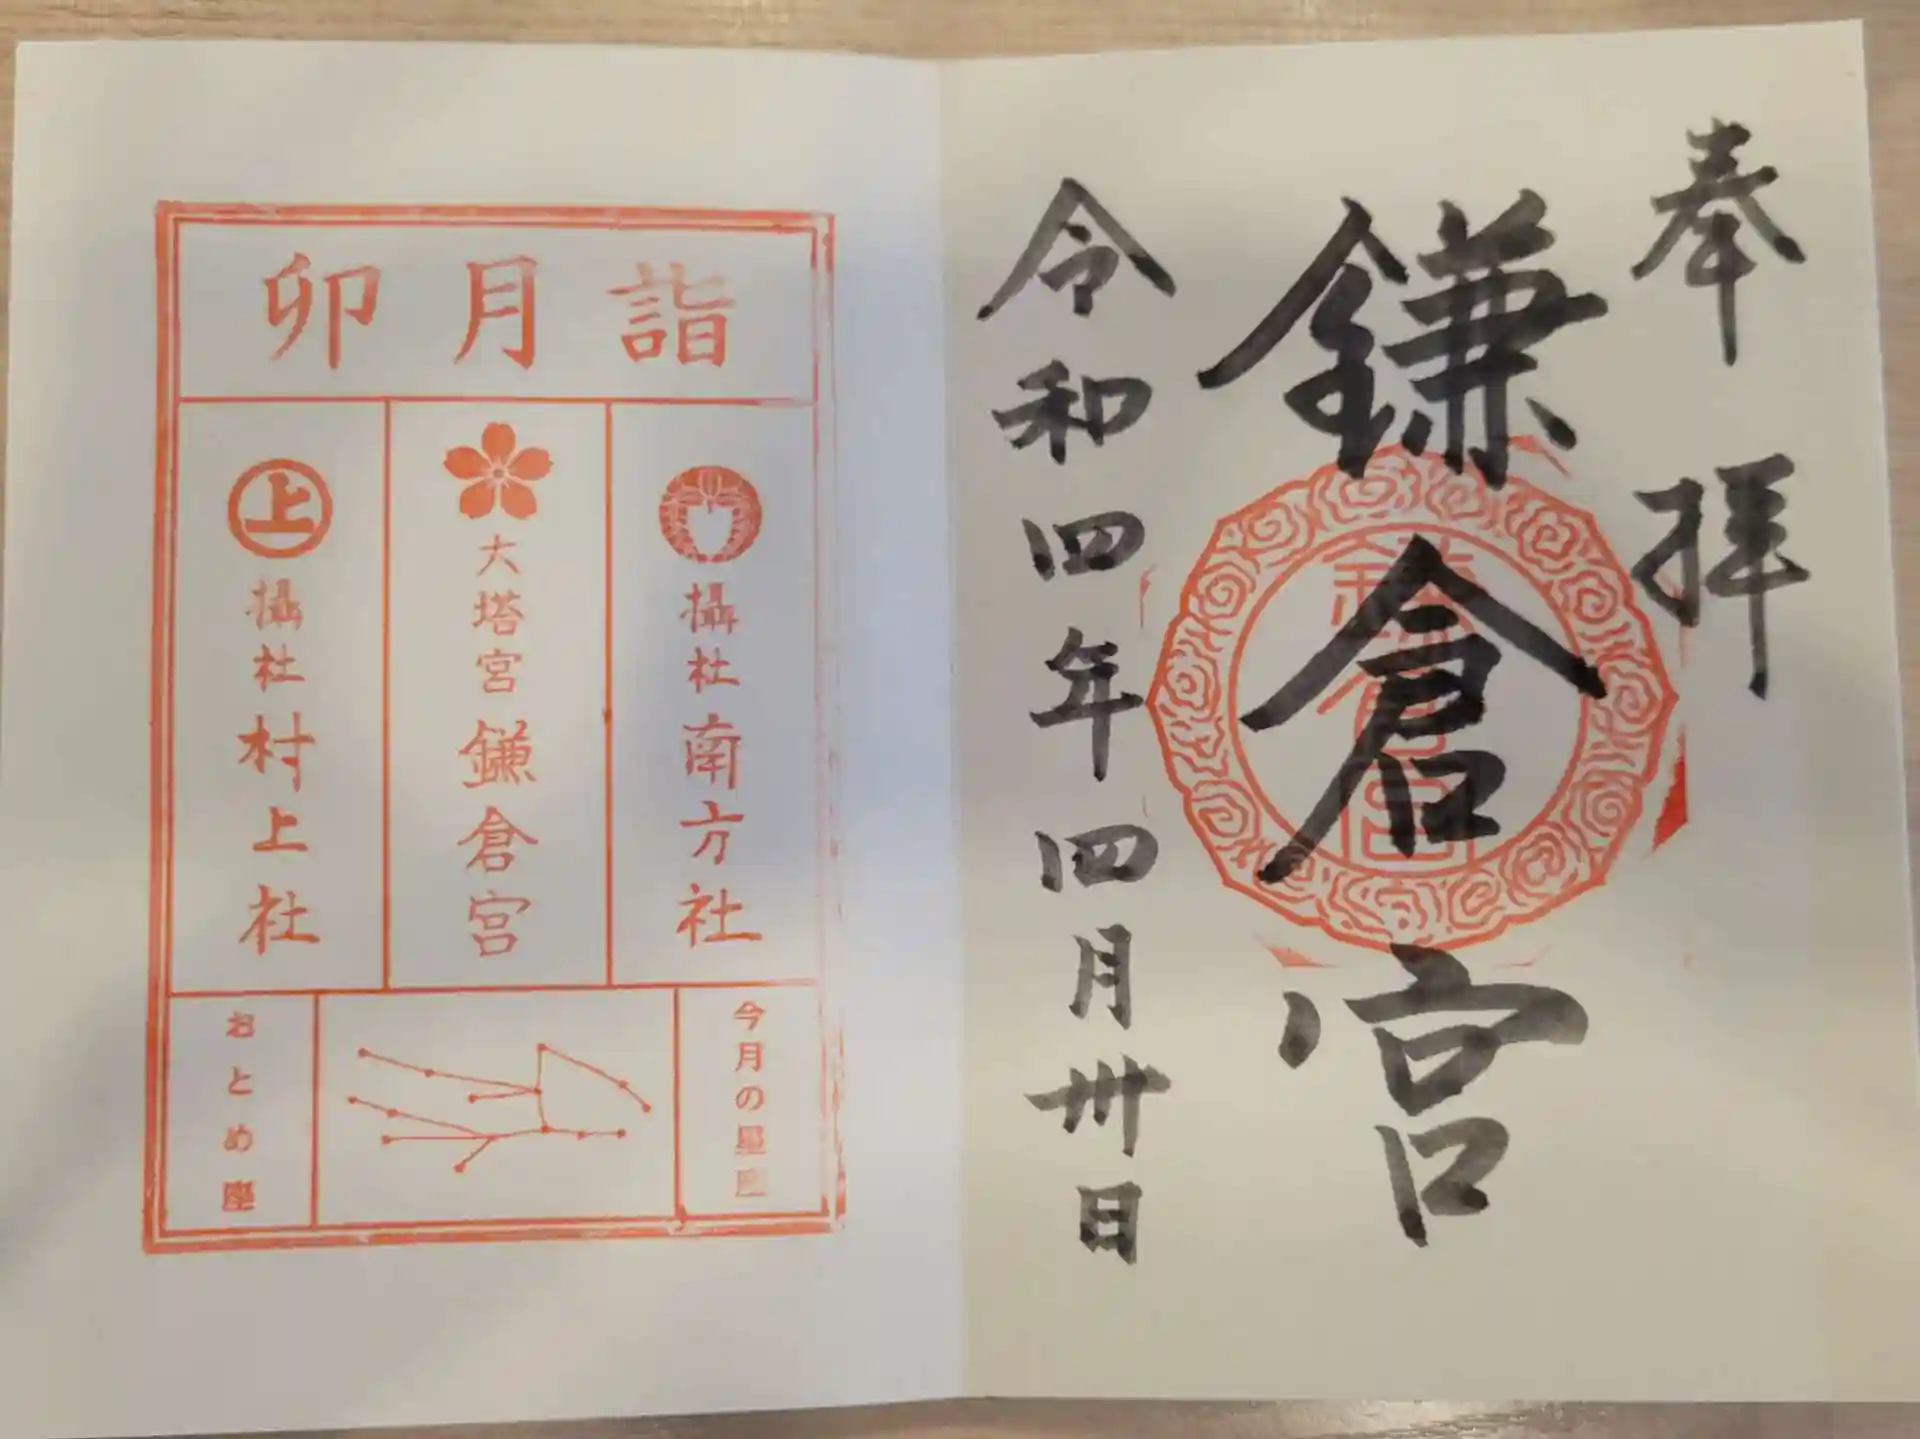 奉拝
鎌倉宮
令和四年四月卅日
卯月詣
攝社南方社
大塔宮鎌倉宮
上
攝社村上社
今月の星座
おとめ座